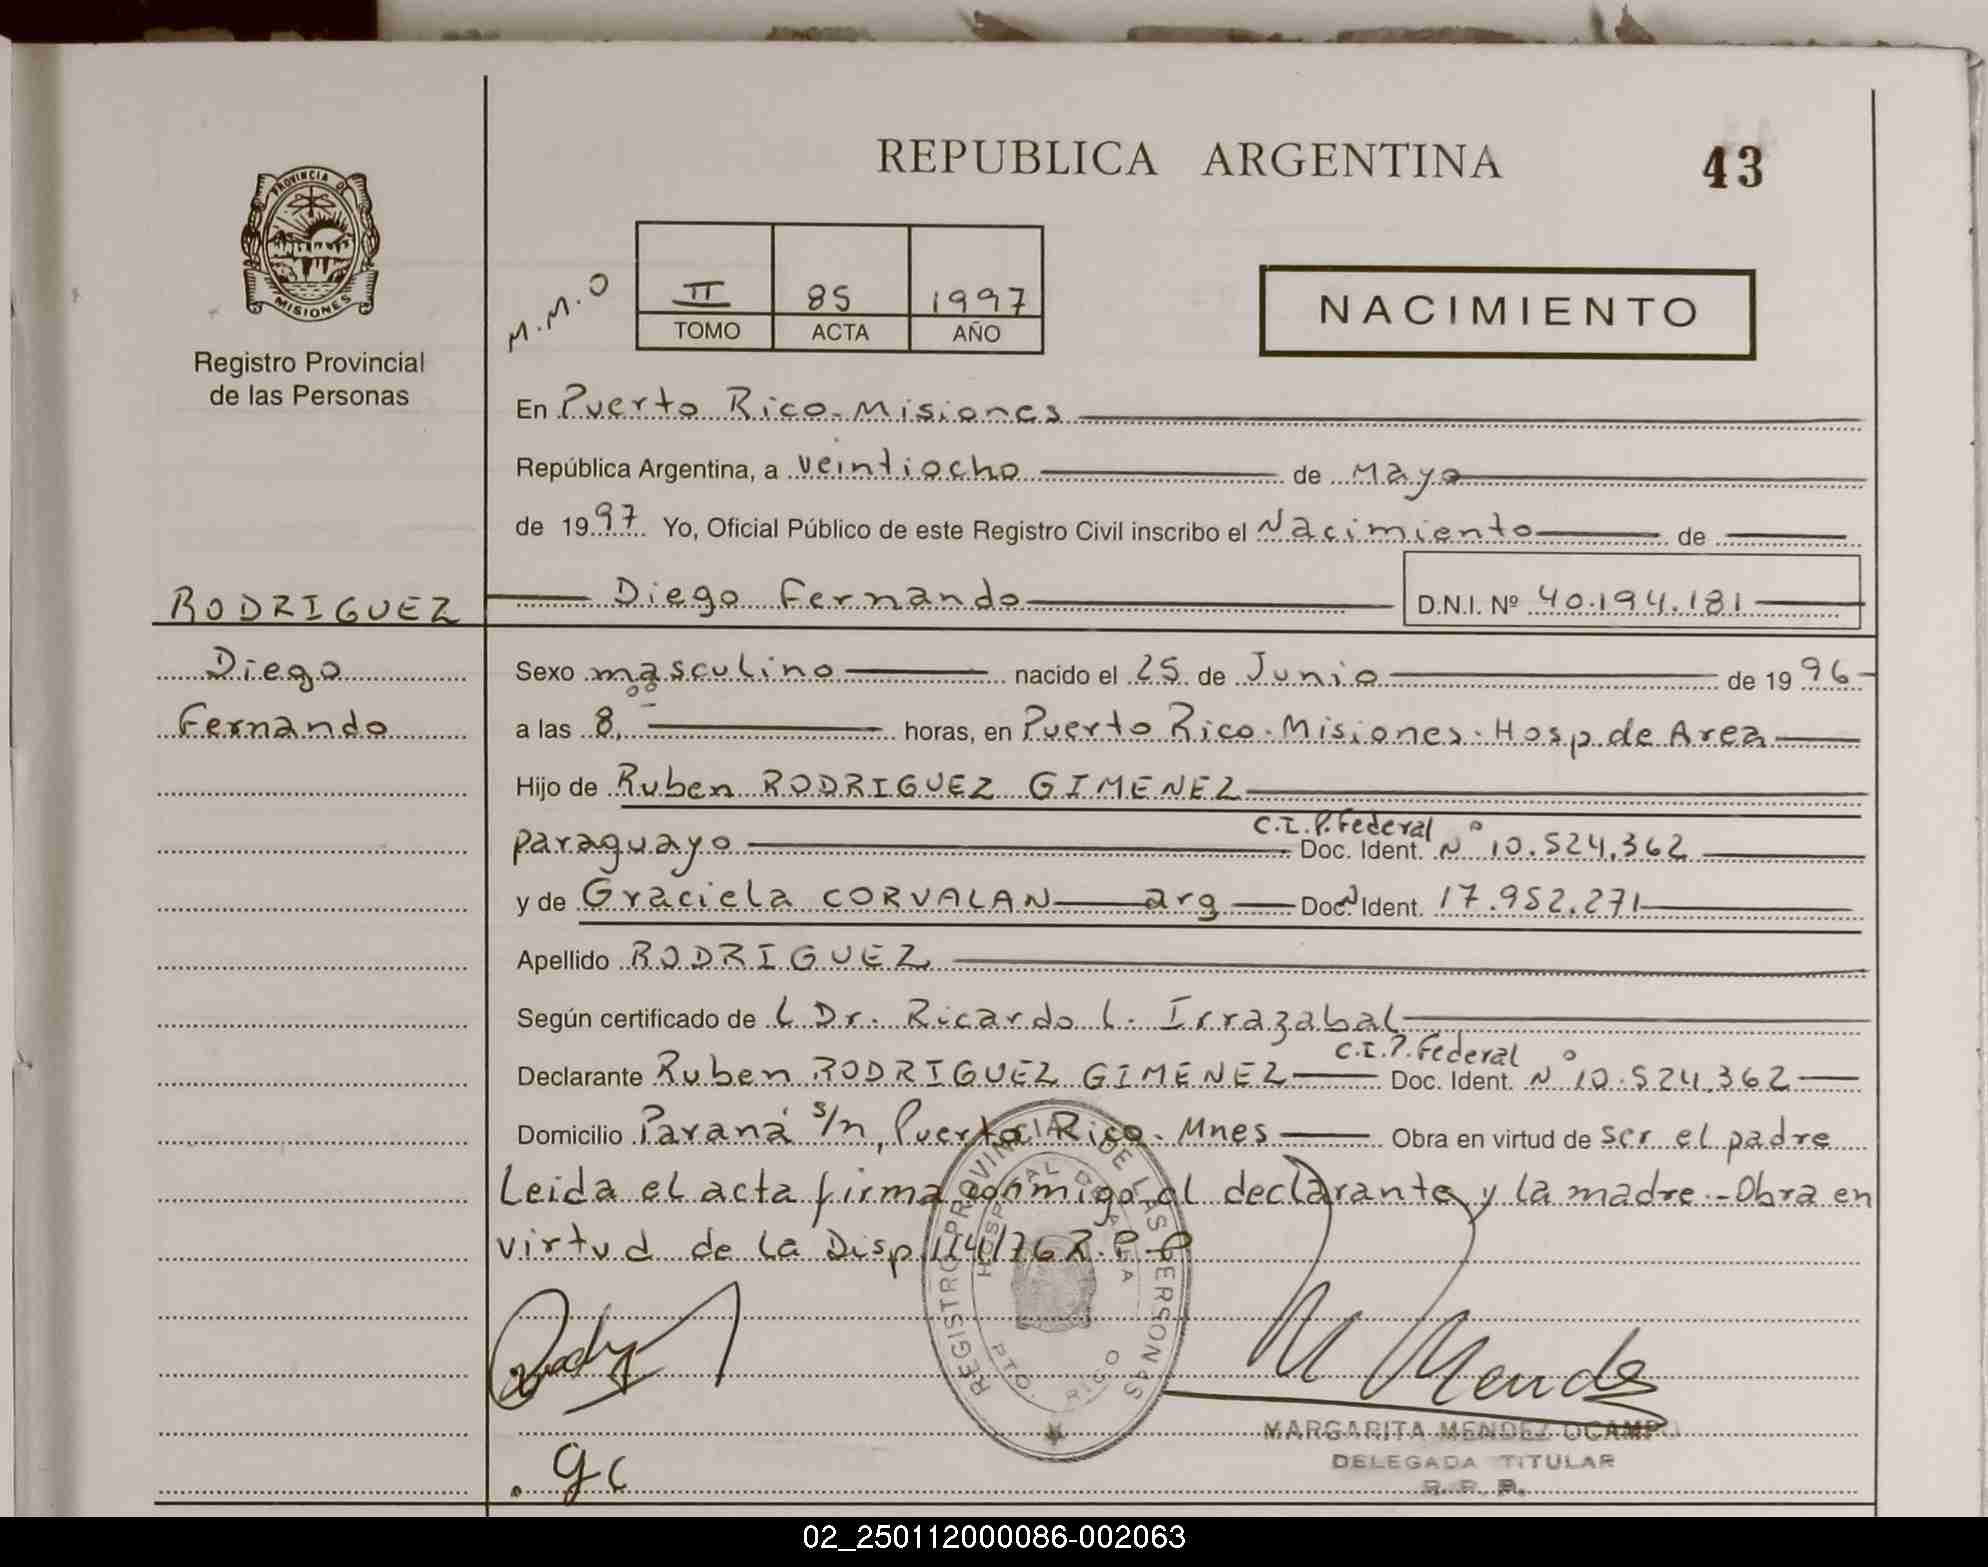 REPUBLICA ARGENTINA
43
PROVINCIA DE
MISIONES
Registro Provincial
de las Personas
M.M.O
II 85 1997
TOMO ACTA AÑO
NACIMIENTO
En Puerto Rico - Misiones
República Argentina, a veintiocho de Mayo
de 1997 Yo, Oficial Público de este Registro Civil inscribo el Nacimiento de
RODRIGUEZ Diego Fernando D.N.I. Nº 40.194.181
Diego Sexo masculino nacido el 25 de Junio de 1996
Fernando a las 8,00 horas, en Puerto Rico - Misiones - Hosp de Area
Hijo de Ruben RODRIGUEZ GIMENEZ
C.I.P. Federal
paraguayo Doc. Ident. Nº 10.524.362
y de Graciela CORVALAN arg Doc. Ident. 17.952.271
Apellido RODRIGUEZ
Según certificado de L Dr. Ricardo L. Irrazabal
C.I.P. Federal
Declarante Ruben RODRIGUEZ GIMENEZ Doc. Ident. Nº 10.524.362
Domicilio Paraná s/n, Puerto Rico - Mnes Obra en virtud de ser el padre
Leida el acta firma conmigo el declarante y la madre.- Obra en
virtud de la Disp 114/76 R.P.P
REGISTRO PROVINCIAL DE LAS PERSONAS
HOSPITAL DE AREA
PTO. RICO
M Mendez
MARGARITA MENDEZ OCAMPO
DELEGADA TITULAR
R. P. P.
. gc
02_250112000086-002063